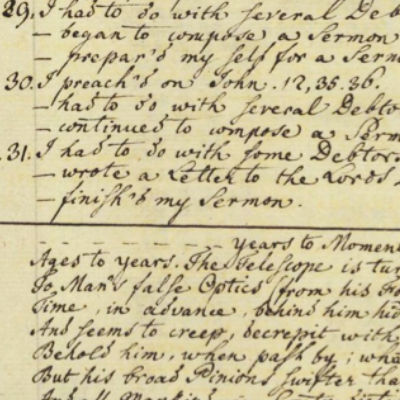 29. I had to do with several Deb
— began to compose a Sermon
— prepar'd my self for a Serm
30. I preach'd on John. 12, 35. 36.
— had to do with several Debto
— continued to compose a Serm
31. I had to do with some Debtors
— wrote a Letter to the Lords
— finish'd my Sermon.
– – – – – – – years to Momen
Ages to years. The Telescope is tur
To Man's false Optics (from his Fo
Time, in advance, behind him hid
And seems to creep, decrepit with
Behold him, when past by; wha
But his broad Pinions swifter tha